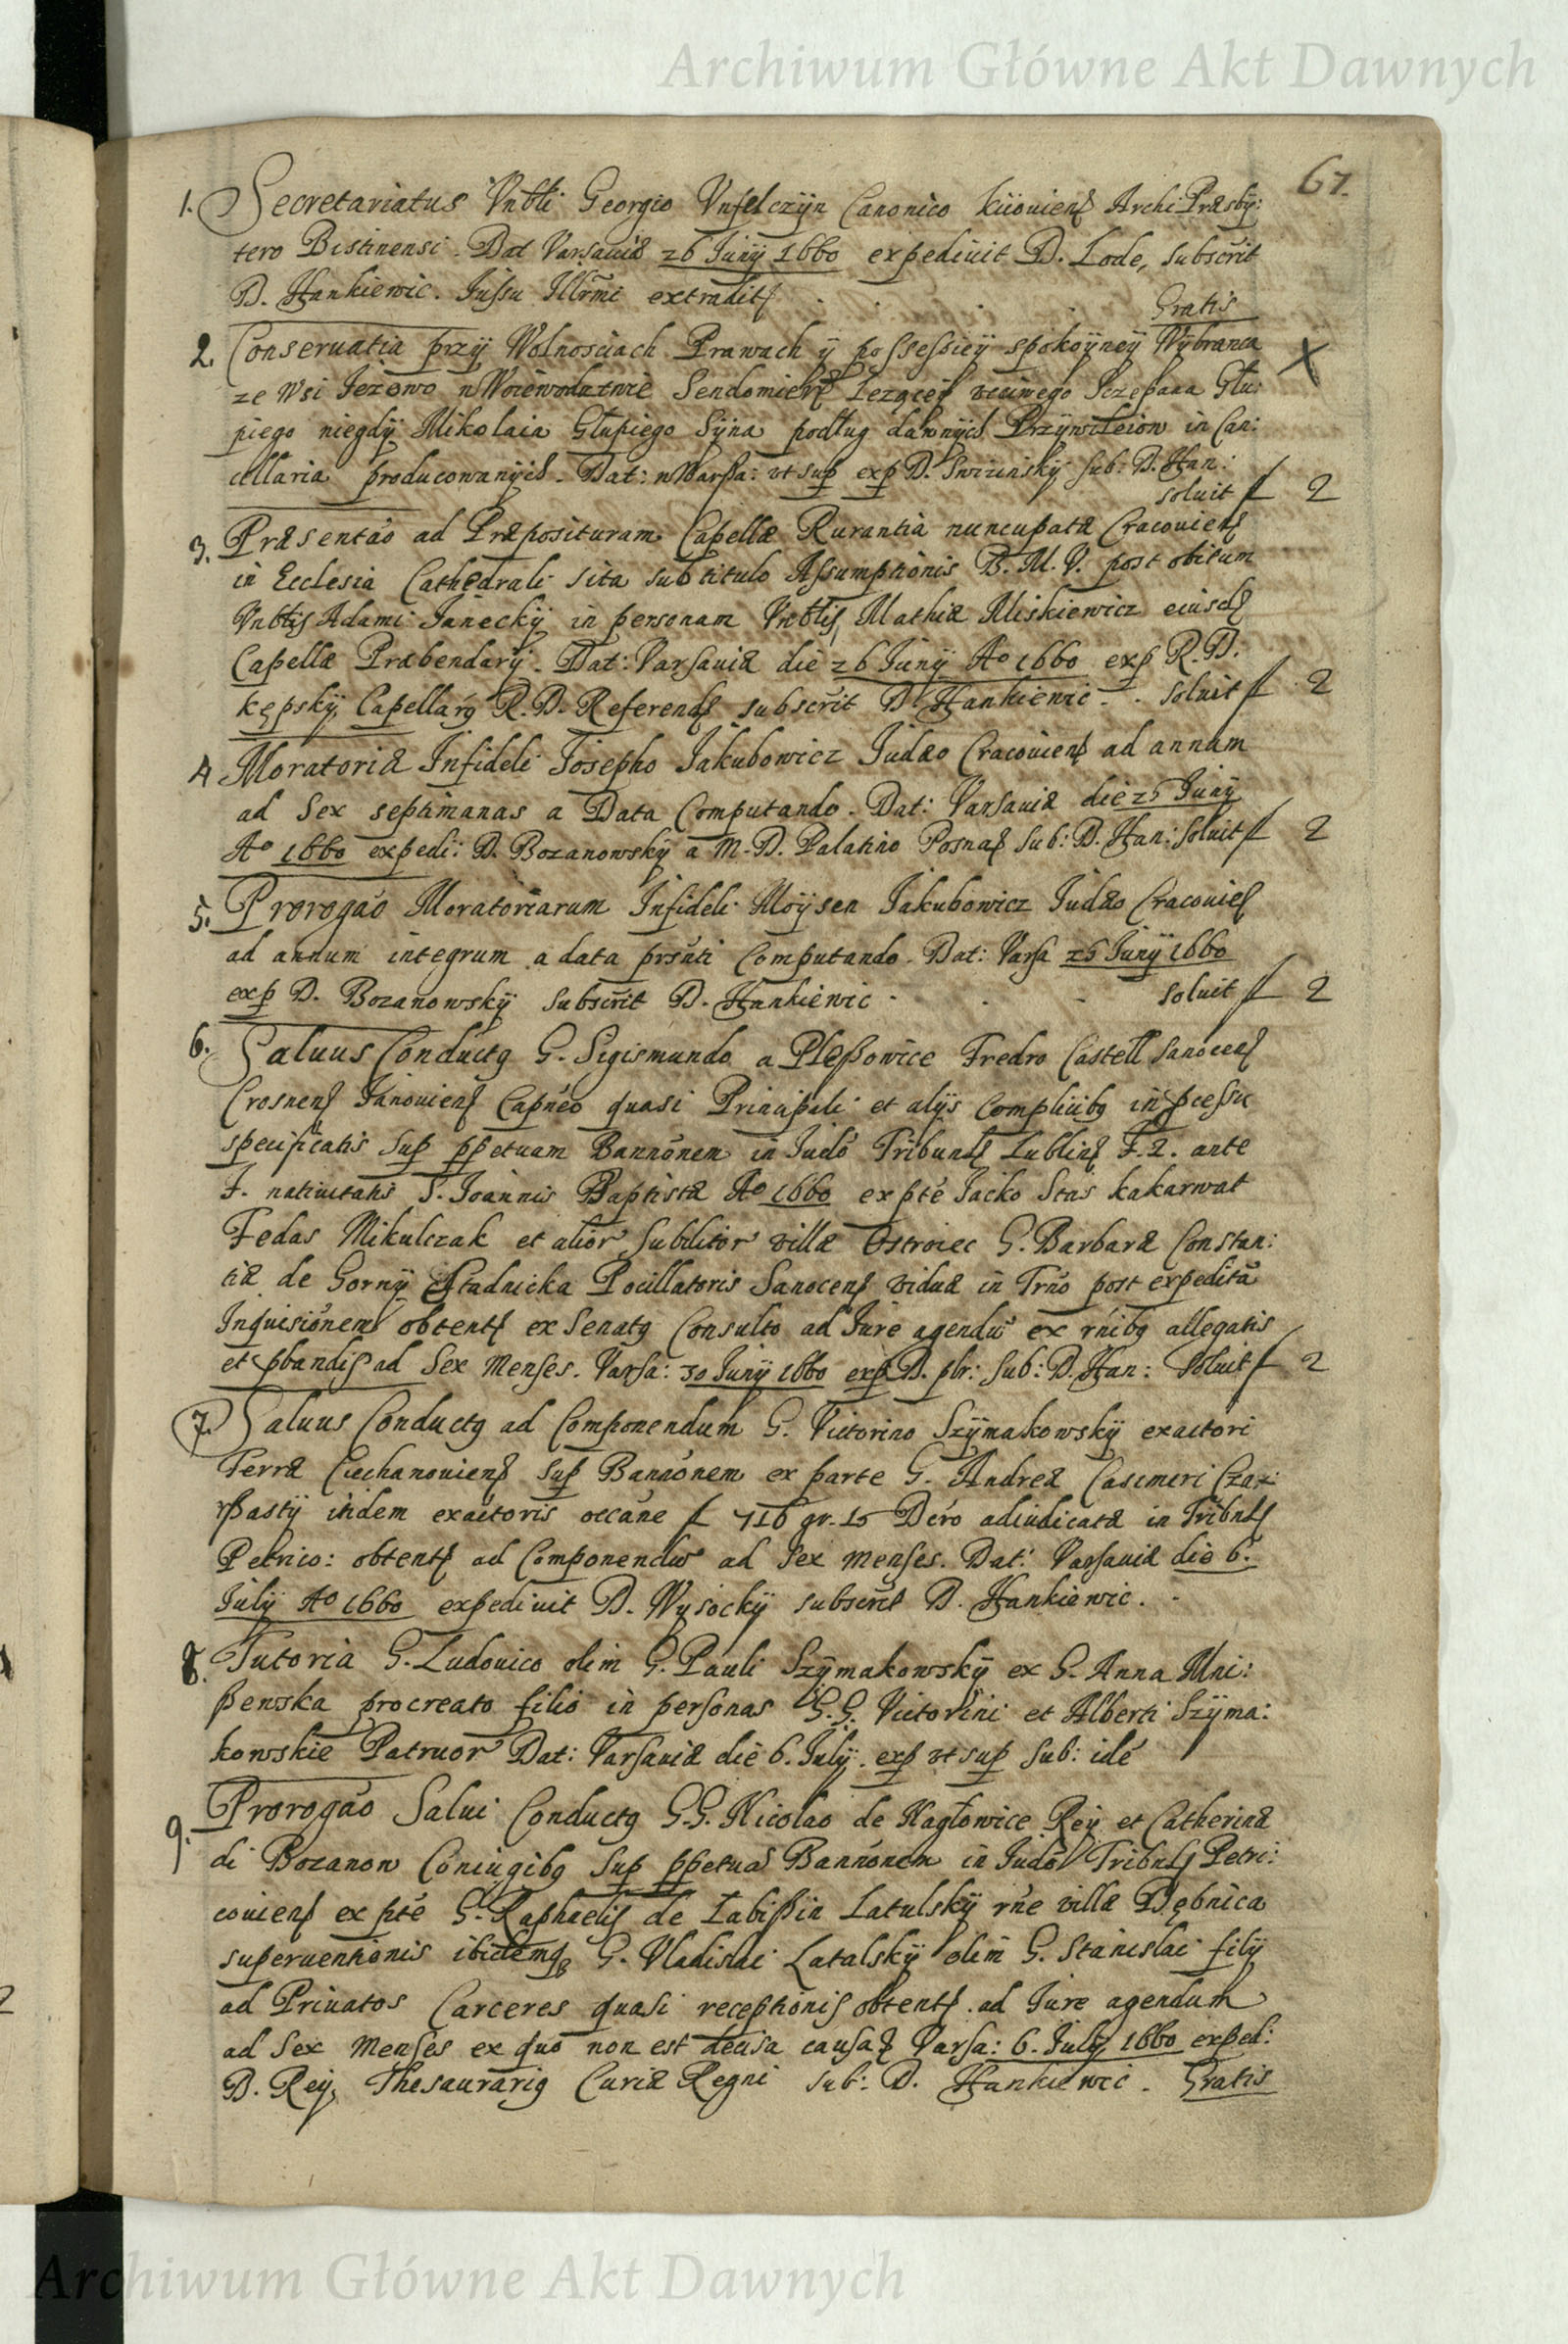 Archiwum Główne Akt Dawnych
67.
1. Secretariatus Vnbli Georgio Vnselczÿn Canonico kiiouiens Archi Præsbÿ:
tero Bistinensi. Dat Varsauiæ 26 Junÿ 1660 expediuit D. Lode, subscrit
D. Hankiewic. Jussu Illrmi extradit
Gratis
2. Conseruatia przÿ Wolnosciach Prawach ÿ possessieÿ spokoÿneÿ Wÿbranca
ze Wsi Jezowo w Woiewodztwie Sendomiers Leząceÿ vcciwego Sczepana Głu:
piego niegdÿ Mikolaia Głupiego Sÿna podług dawnÿch Przÿwileiow in Can:
cellaria producowanÿch. Dat: w Warsza: vt sup exp D. Swizinskÿ sub: D. Han:
soluit f 2
3. Præsentao ad Præposituram Capellæ Rurantia nuncupatæ Cracouiens
in Ecclesia Cathedrali sita sub titulo Assumptionis B. M. V. post obitum
Vnblis Adami Janeckÿ in personam Vnblis Mathiæ Miskiewicz eiusd
Capellæ Præbendarÿ. Dat: Varsauiæ die 26 Junÿ Ao 1660 exp R. D.
kępskÿ Capellarg R. D. Referend subscrit D Hankiewic. soluit f 2
4 Moratoriæ Infideli Josepho Jakubowicz Judæo Cracouiens ad annum
ad sex septimanas a Data Computando. Dat: Varsauiæ die 25 Junÿ
Ao 1660 expedi: D. Bozanowskÿ a M. D. Palatino Posna sub: D. Han: soluit f 2
5. Prorogao Moratoriarum Infideli Moÿsen Jakubowicz Judæo Cracouies
ad annum integrum a data prsnti Computando. Dat: Varsa 25 Junÿ 1660
exp D. Bozanowskÿ subscrit D. Hankiewic soluit f 2
6. Saluus Conductg G. Sigismundo a Pleszowice Fredro Castell Sanocen
Crosnens Janouiens Capneo quasi Principali et alÿs complicibg in pcessu
specificatis sup ppetuam Bannonem in Judo Tribunal Lublins F. 2. ante
F. natiuitatis S. Joannis Baptistæ Ao 1660 ex pte Jacko Stas kakarwat
Fedas Mikulczak et alior subditor villæ Ostroiec G. Barbaræ Constan:
tiæ de Gornÿ Stadnicka Pocillatoris Sanocens viduæ in Trno post expedita
Inquisionem obtent ex Senatg Consulto ad Jure agendu ex rnibg allegatis
et pbandis ad sex menses. Varsa: 30 Junÿ 1660 exp D. plr: sub: D. Han: soluit f 2
7. Saluus Conductg ad Componendum G. Victorino Szÿmakowskÿ exactori
Terræ Ciechanouiens sup Bannonem ex parte G. Andreæ Casimeri Czar:
itidem exactoris occane f 716 gr. 15 Dero adiudicatæ in Tribnl
Petrico: obtent ad Componendu ad sex menses. Dat: Varsauiæ die 6.
Julÿ Ao 1660 expediuit D. Wÿsockÿ subscrit D. Hankiewic.
8. Tutoria G. Ludouico olim G. Pauli Szÿmakowskÿ ex G. Anna Mni:
szewska procreato filio in personas G. G. Victorini et Alberti Szÿma:
kowskie Patruor Dat: Varsauiæ die 6. Julÿ. exp vt sup sub: ide
9. Prorogao Salui Conductg G. G. Nicolao de Nagłowice Reÿ et Catherinæ
di Bozanow Coniugibg sup ppetua Bannonem in Judo Tribnl Petri:
couiens ex pte G. Raphaelis de Labiszin Latalskÿ rne villæ Dębnica
superuentionis ibidemq G. Vladislai Latalskÿ olim G. Stanislai filÿ
ad Priuatos Carceres quasi receptionis obtent. ad Jure agendum
ad sex menses ex quo non est decisa causa Varsa: 6. Julÿ 1660 exped:
D. Reÿ Thesaurarig Curiæ Regni sub: D. Hankiewic. Gratis
Archiwum Główne Akt Dawnych